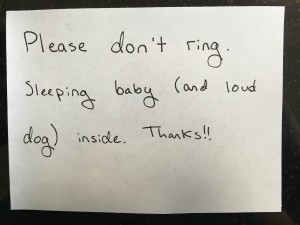 Please don't ring.
Sleeping baby (and loud
dog) inside. Thanks!!